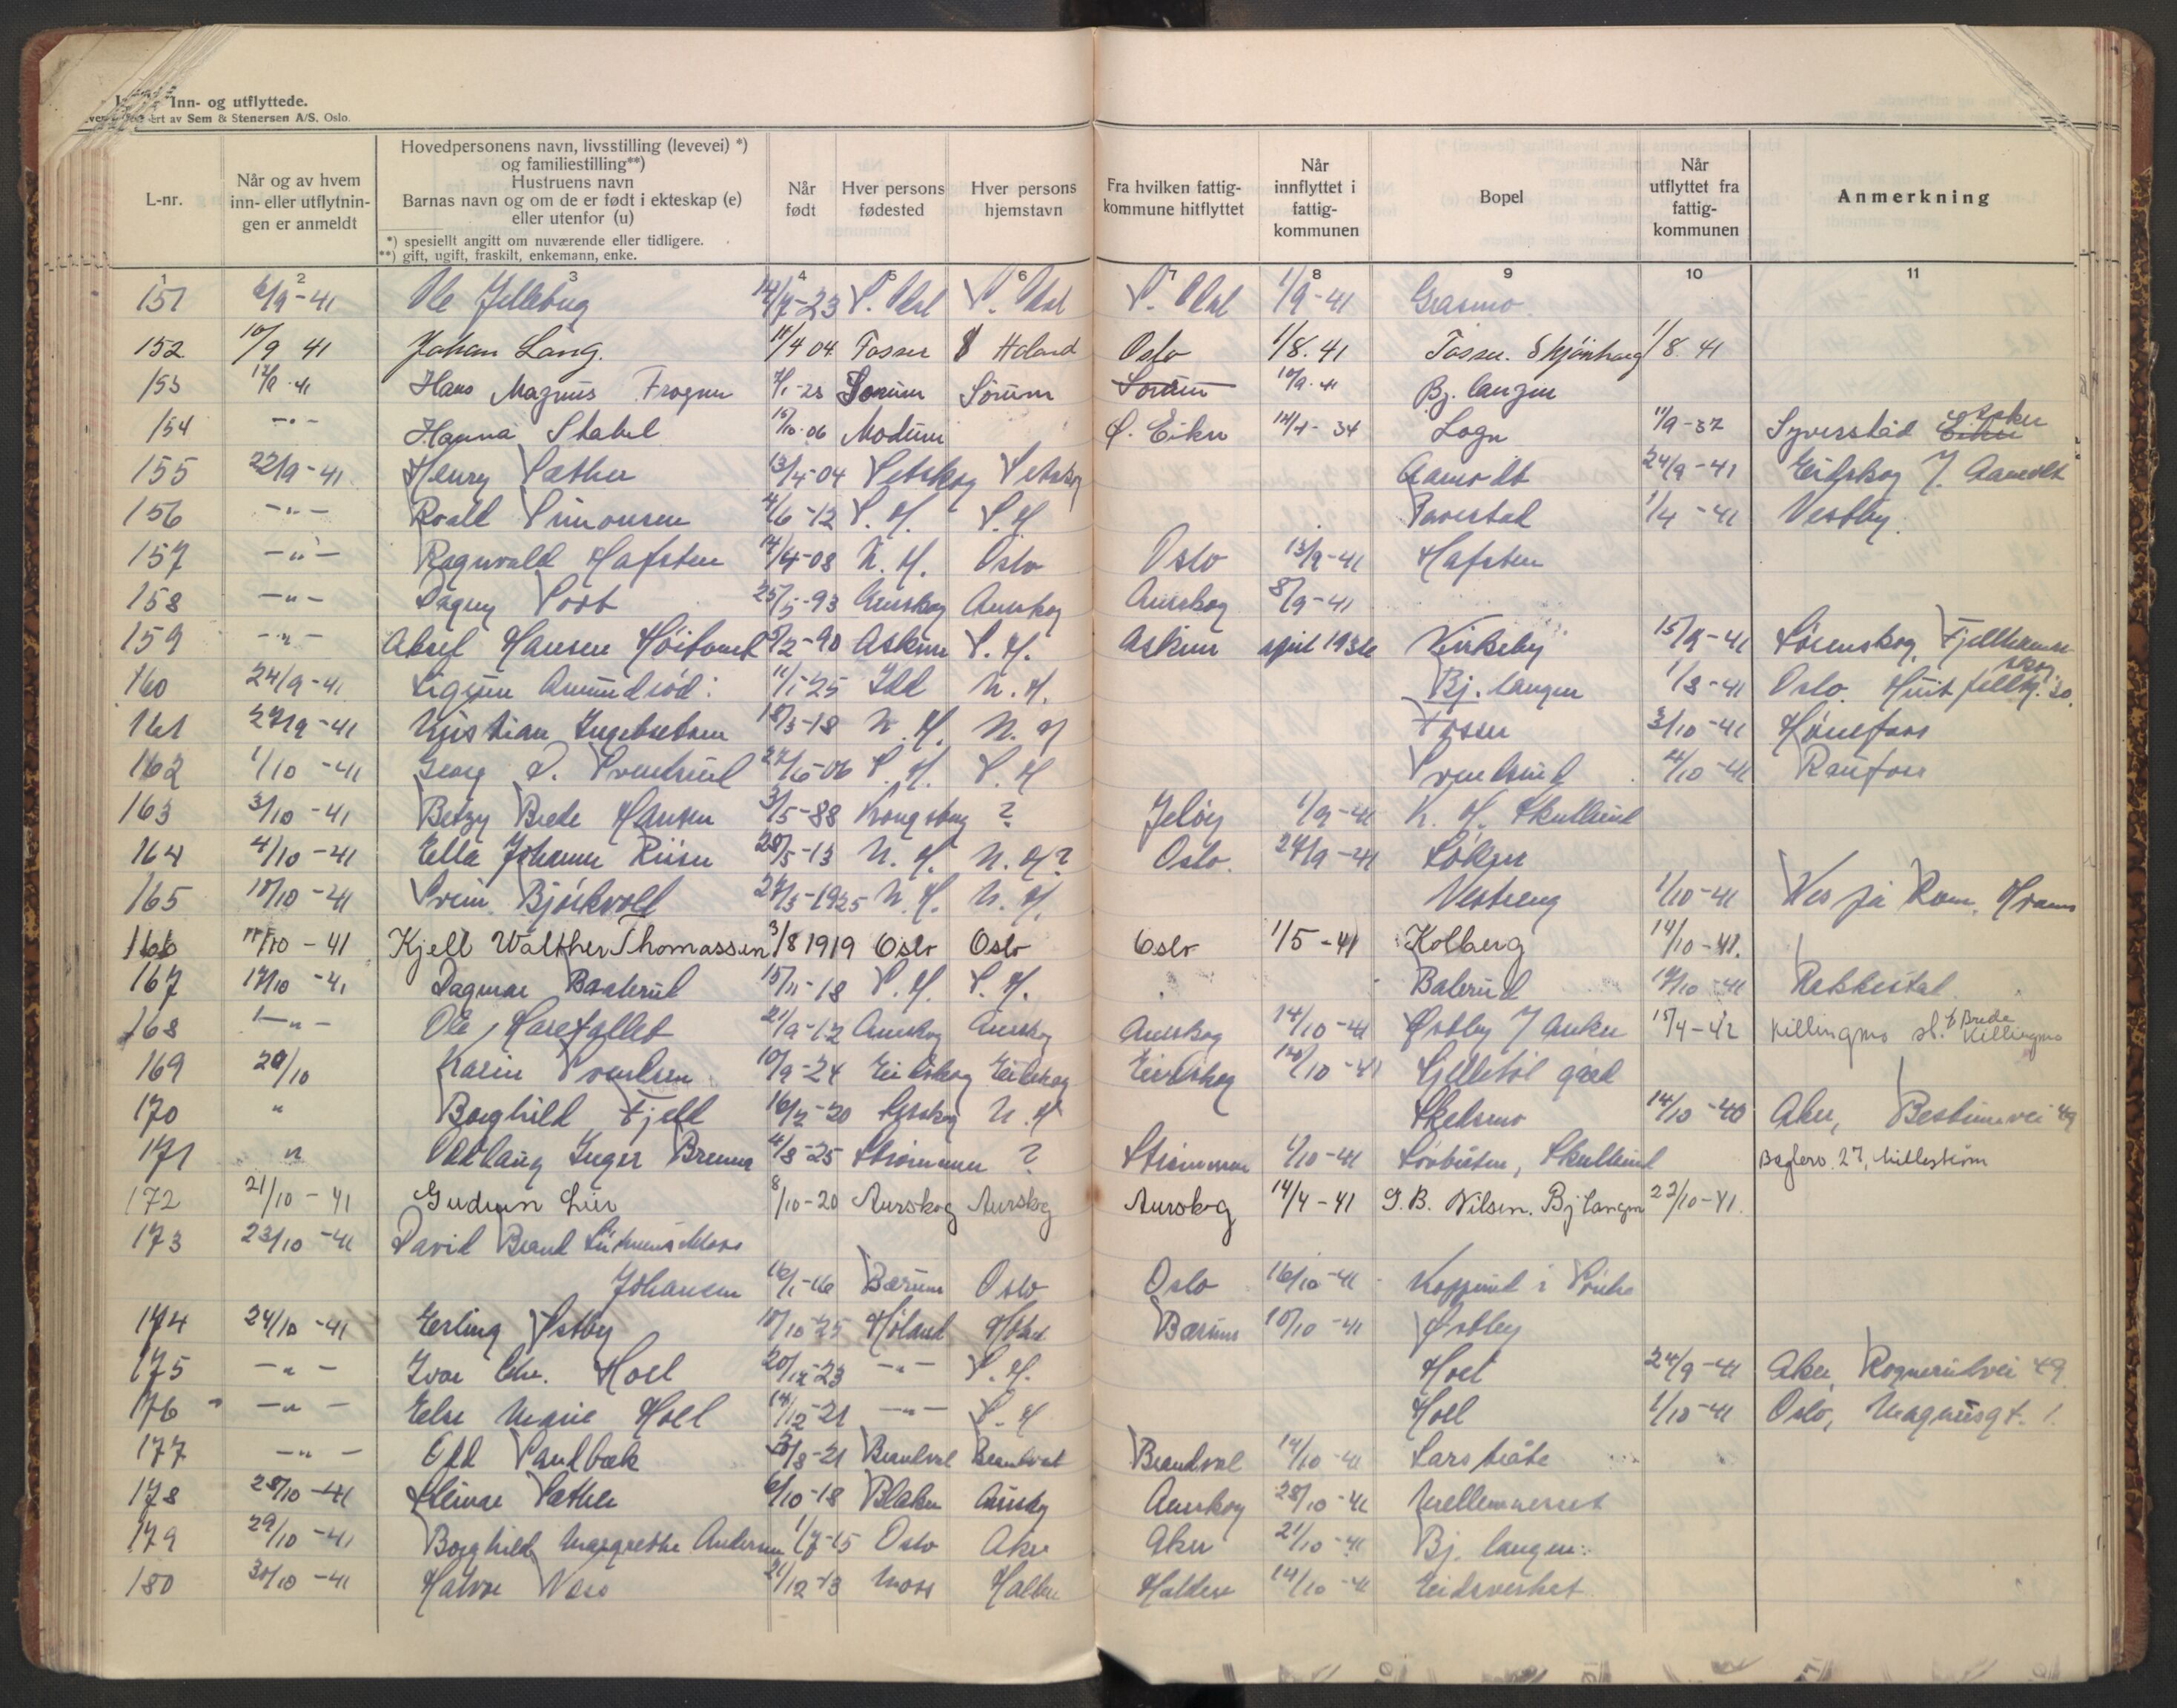 Inn- og utflyttede.
ert av Sem & Stenersen A/S. Oslo.
L-nr.
Når og av hvem inn- eller utflytnin-gen er anmeldt
Hovedpersonens navn, livsstilling (levevei) *)
og familiestilling**)
Hustruens navn
Barnas navn og om de er født i ekteskap (e)
eller utenfor (u)
*) spesiellt angitt om nuværende eller tidligere.
**) gift, ugift, fraskilt, enkemann, enke.
Når født
Hver persons fødested
Hver persons hjemstavn
Fra hvilken fattig-kommune hitflyttet
Når innflyttet i fattig-kommunen
Bopel
Når utflyttet fra fattig-kommunen
Anmerkning
1 2 3 4 5 6 7 8 9 10 11
151 6/9-41 Ole 14/7-23 1/9-41 Grasmo
152 10/9 41 Johan Lang. 11/4 04 Tosser S Høland Oslo 1/8. 41 Tosser. Skjønhaug 1/8. 41
153 12/9. 41 Hans Magnus Frogner Sørum Sørum Sørum 10/9. 41 Bj. langen
154 -"- Hanna Stabel 15/10-06 Modum Ø. Eiker 14/4-34 Logn 11/9-37 Syverstad Asker
155 22/9-41 Henry Sæther 13/4-04 Setskog Setskog Aamodt 24/9-41 Eidskog J. Aamodt
156 -"- Roald Simonsen 4/6-12 S. H. S. H. Tarestad 1/4-41 Vestby.
157 -"- Ragnvald Hafsten 14/4-08 N. H. Oslo Oslo 13/9-41 Hafsten
158 -"- Dagny 25/5-93 Aurskog Aurskog Aurskog 8/9-41
159 -"- Aksel Hansen Høitomt 5/2-90 Askim S. H. Askim april 1936 Kirkeby 15/9-41 Lørenskog, Fjellhamar
160 24/9-41 Sigrun Amundrød 11/1-25 Idd N. H. Bj. langen 1/8-41 Oslo.
161 27/9-41 Kristian Ingebretsen 18/3-18 N. H. N. H Tosser 3/10-41 Hønefoss
162 1/10-41 Georg D. Svendsrud 27/6-06 S. H. S. H Svendsrud 4/10-41 Raufoss
163 3/10-41 Betzy Brede Hansen 3/5-88 Kongsberg ? Jeløy 1/9-41 N. H. Skullerud
164 4/10-41 Ella Johanne Riiser 28/5-13 N. H. N. H? Oslo. 24/9-41 Løkger
165 18/10-41 Svein Bjørkvold 27/3-1925 N. H. N. H. Vestreng 1/10-41 Nes på Rom.
166 11/10-41 Kjell Walther Thomassen 3/8 1919 Oslo Oslo Oslo 1/5-41 Kolberg 14/10-41.
167 17/10-41 Dagmar Baaterud 15/11-18 S. H. S. H. Baterud 17/10-41 Rakkestad
168 -"- Ole Harefallet 21/9-12 Aurskog Aurskog Aurskog 14/10-41 Østby J Anker 15/4-42 Killingmo Brede Killingmo
169 20/10 Karin Svendsen 10/9-24 Eidskog Eidskog Eidskog 10/10-41 gård
170 " Borghild Fjell 16/2-20 N. H Skedsmo 14/10-40 Aker, 49
171 " Oddlaug Inger Brenna 4/8-25 Strømmen ? Strømmen 1/10-41 Skullerud Baglerv. 27, Lillestrøm
172 21/10-41 Gudrun Lier 8/10-20 Aurskog Aurskog Aurskog 14/4-41 G. B. Nilsen. Bj langen 22/10-41.
173 23/10-41 David Brand
Johansen 16/1-16 Bærum Oslo Oslo 16/10-41 Kopperud i
174 24/10-41 Erling Østby 18/10-25 Høland Høland Bærum 10/10-41 Østby
175 -"- Ivar Chr. Hoel 20/12-23 -"- S. H. Hoel 24/9-41 Aker, Rognerudvei 49
176 -"- Else Marie Hoel 14/12-21 -"- S. H Hoel 1/10-41 Oslo, Magnusgt. 1.
177 -"- Odd Sandbæk 30/3-21 Brandval Brandval Brandval 14/10-41 Larsbråte
178 28/10-41 Steinar Sæther 6/10-18 Blaker Aurskog Aurskog 28/10-41 Mellemnesset
179 29/10-41 Borghild Margrethe Andersen 1/7-15 Oslo Aker Aker 21/10-41 Bj. langen
180 30/10-41 Halvor Næss 21/12-13 Moss Halden Halden 14/10-41 Eidsverket